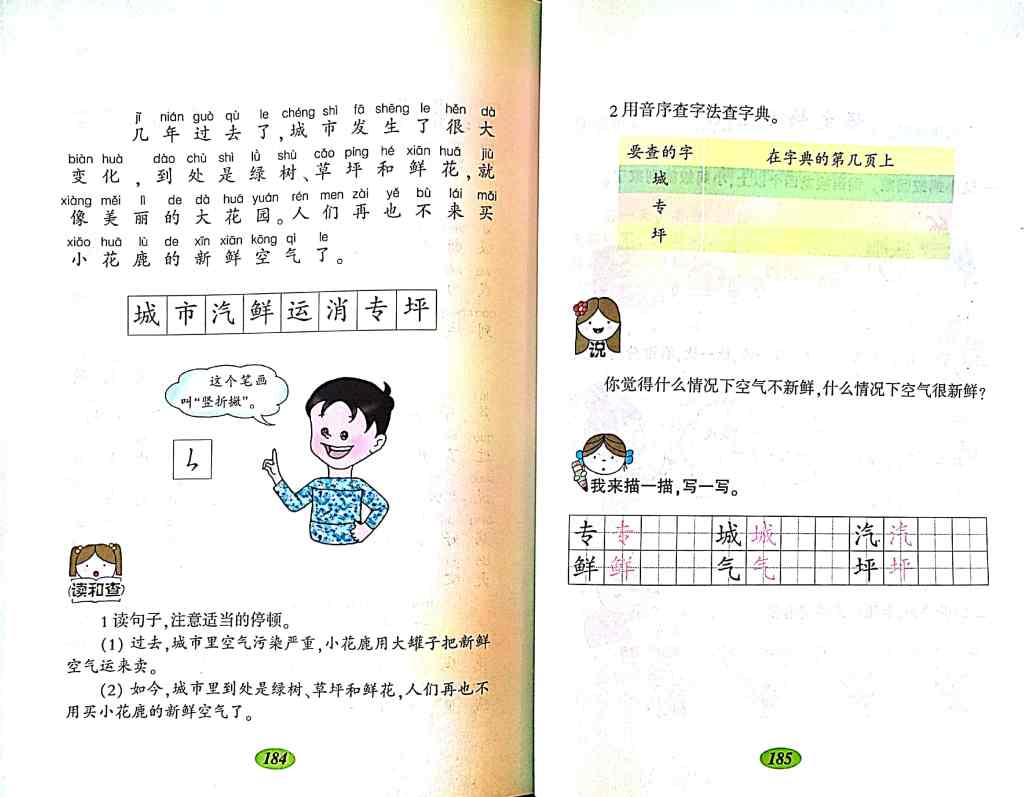 jǐ nián guò qù le chéng shì fā shēng le hěn dà
几年过去了,城市发生了很大
biàn huà dào chù shì lǜ shù cǎo píng hé xiān huā jiù
变化,到处是绿树、草坪和鲜花,就
xiàng měi lì de dà huā yuán rén men zài yě bù lái mǎi
像美丽的大花园。人们再也不来买
xiǎo huā lù de xīn xiān kōng qì le
小花鹿的新鲜空气了。
城市汽鲜运消专坪
这个笔画
叫“竖折撇”。
读和查
1 读句子,注意适当的停顿。
(1) 过去,城市里空气污染严重,小花鹿用大罐子把新鲜
空气运来卖。
(2) 如今,城市里到处是绿树、草坪和鲜花,人们再也不
用买小花鹿的新鲜空气了。
184
2 用音序查字法查字典。
要查的字 在字典的第几页上
城
专
坪
说
你觉得什么情况下空气不新鲜,什么情况下空气很新鲜?
我来描一描,写一写。
专 专 城 城 汽 汽
鲜 鲜 气 气 坪 坪
185